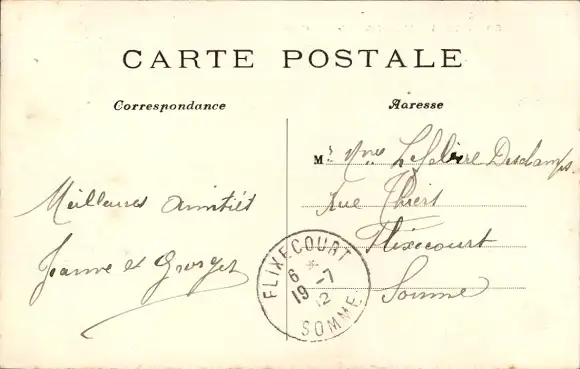 CARTE POSTALE
Correspondance
Adresse
Mr Mme Lefebvre Deschamps
Rue Thiers
Flixecourt
Somme
Meilleures amitiés
Jeanne et Georges
FLIXECOURT
6 *
19 -7
12
SOMME